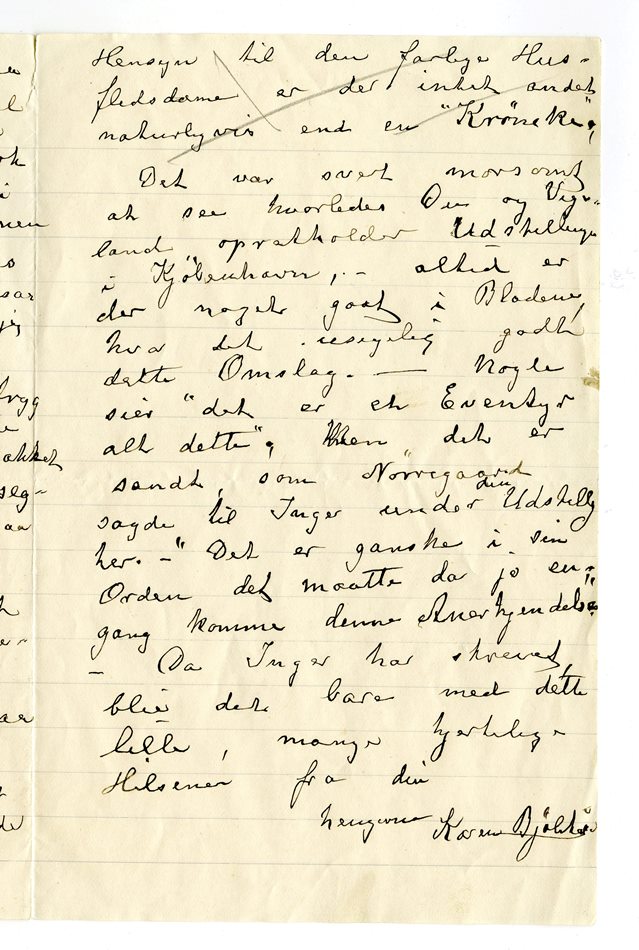 Hensyn til den farlige Hus-
flidsdame er der intet andet
naturligvis end en "Kröneke",
Det var svært morsomt
at see hvorledes Du og Vige-
land opretholder Udstillingen
i Kjöbenhavn, - altid er
der noget godt i Bladene,
hvor det usigelig godt
dette Omslag. — Nogle
sier "det er et Eventyr
alt dette", Men det er
sandt, som Nörregaard
sagde til Inger under den Udstilling
her. - "Det er ganske i sin
Orden det maatte da jo en-
gang komme denne Anerkjendelse".
- Da Inger har skrevet,
blir det bare med dette
lille, mange hjertelige
Hilsener fra din
hengivne Karen Bjölstad